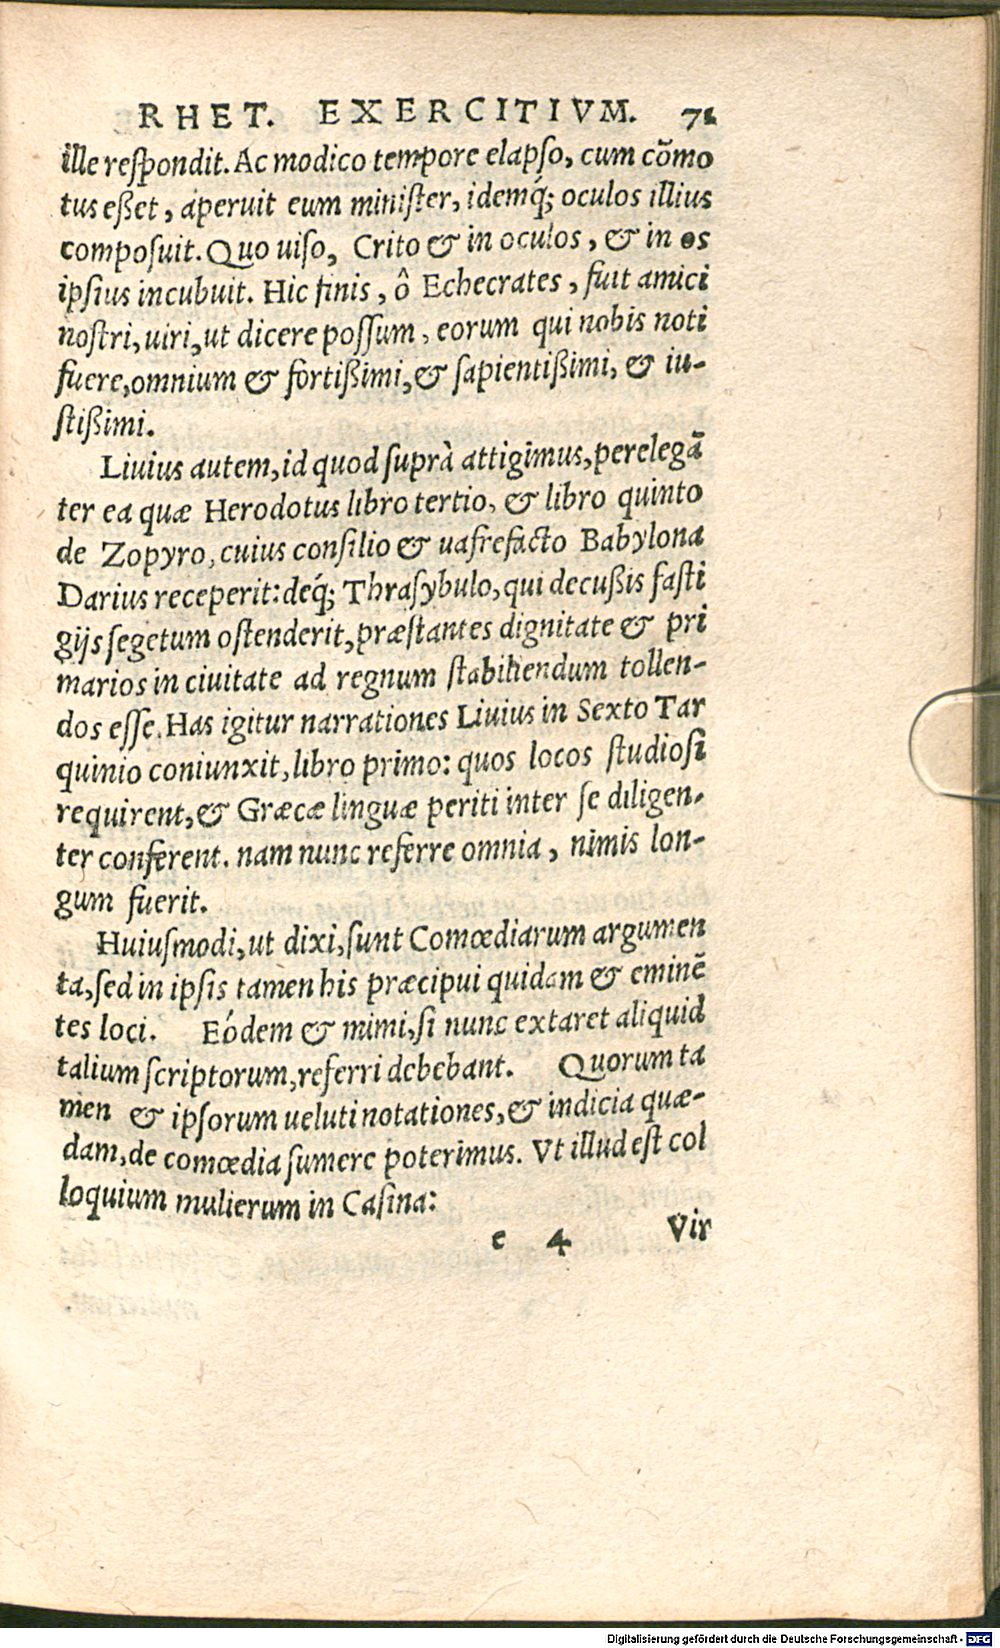 RHET. EXERCITIVM. 71
ille reſpondit. Ac modico tempore elapſo, cum cōmo
tus eßet, aperuit eum miniſter, idemq́; oculos illius
compoſuit. Quo uiſo, Crito & in oculos, & in os
ipſius incubuit. Hic finis, ô Echecrates, fuit amici
noſtri, uiri, ut dicere poſſum, eorum qui nobis noti
fuere, omnium & fortißimi, & ſapientißimi, & iu-
ſtißimi.
Liuius autem, id quod ſuprà attigimus, perelegā
ter ea quæ Herodotus libro tertio, & libro quinto
de Zopyro, cuius conſilio & uafrefacto Babylona
Darius receperit: deq́; Thraſybulo, qui decußis faſti
gijs ſegetum oſtenderit, præſtantes dignitate & pri
marios in ciuitate ad regnum ſtabiliendum tollen-
dos eſſe. Has igitur narrationes Liuius in Sexto Tar
quinio coniunxit, libro primo: quos locos ſtudioſi
requirent, & Græcæ linguæ periti inter ſe diligen-
ter conferent. nam nunc referre omnia, nimis lon-
gum fuerit.
Huiuſmodi, ut dixi, ſunt Comœdiarum argumen
ta, ſed in ipſis tamen his præcipui quidam & eminē
tes loci. Eódem & mimi, ſi nunc extaret aliquid
talium ſcriptorum, referri debebant. Quorum ta
men & ipſorum ueluti notationes, & indicia quæ-
dam, de comœdia ſumere poterimus. Vt illud eſt col
loquium mulierum in Caſina:
e 4 Vir
Digitalisierung gefördert durch die Deutsche Forschungsgemeinschaft - DFG